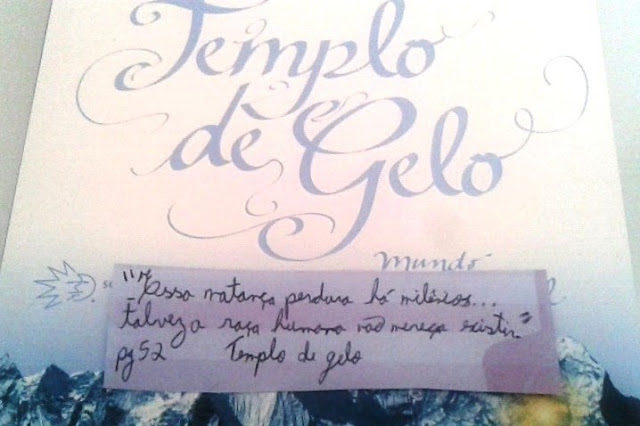 Templo
de Gelo
Mundo
"Essa matança perdura há milênios...
talvez a raça humana não mereça existir."
pg 52 Templo de gelo